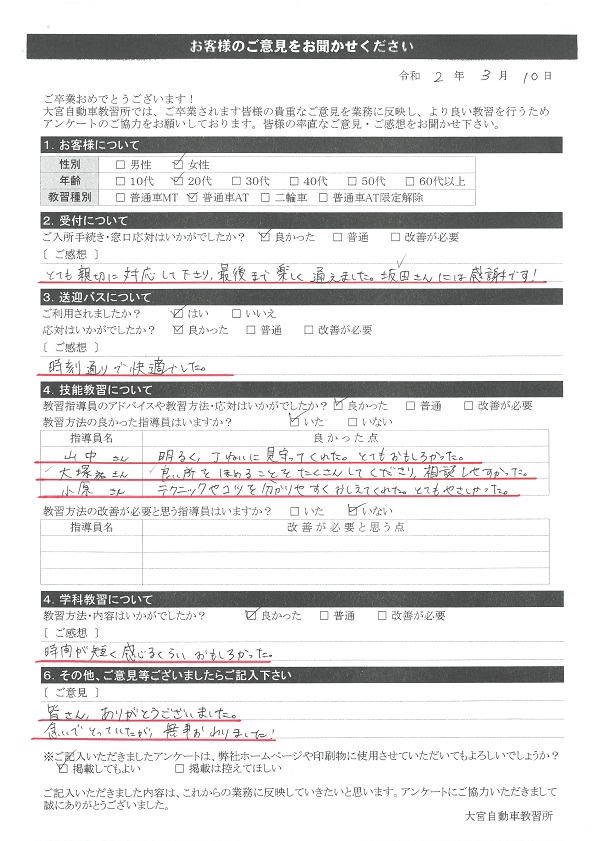 お客様のご意見をお聞かせください
令和 2 年 3 月 10 日
ご卒業おめでとうございます！
大宮自動車教習所では、ご卒業されます皆様の貴重なご意見を業務に反映し、より良い教習を行うため
アンケートのご協力をお願いしております。皆様の率直なご意見・ご感想をお聞かせ下さい。
1. お客様について
性別 □ 男性 ☑ 女性
年齢 □ 10代 ☑ 20代 □ 30代 □ 40代 □ 50代 □ 60代以上
教習種別 □ 普通車MT ☑ 普通車AT □ 二輪車 □ 普通車AT限定解除
2. 受付について
ご入所手続き・窓口応対はいかがでしたか？ ☑ 良かった □ 普通 □ 改善が必要
〔 ご感想 〕
とても親切に対応して下さり、最後まで楽しく通えました。坂田さんには感謝です！
3. 送迎バスについて
ご利用されましたか？ ☑ はい □ いいえ
応対はいかがでしたか？ ☑ 良かった □ 普通 □ 改善が必要
〔 ご感想 〕
時刻通りで快適でした。
4. 技能教習について
教習指導員のアドバイスや教習方法・応対はいかがでしたか？ ☑ 良かった □ 普通 □ 改善が必要
教習方法の良かった指導員はいますか？ ☑ いた □ いない
指導員名 良かった点
山中 さん 明るく、丁ねいに見守ってくれた。とてもおもしろかった。
大塚 さん 良い所をほめることをたくさんしてくださり、相談しやすかった。
小原 さん テクニックやコツを分かりやすくおしえてくれた。とてもやさしかった。
教習方法の改善が必要と思う指導員はいますか？ □ いた ☑ いない
指導員名 改善が必要と思う点
4. 学科教習について
教習方法・内容はいかがでしたか？ ☑ 良かった □ 普通 □ 改善が必要
〔 ご感想 〕
時間が短く感じるくらいおもしろかった。
6. その他、ご意見等ございましたらご記入下さい
〔 ご意見 〕
皆さん、ありがとうございました。
急いでとっていたが、無事おわりました！
※ご記入いただきましたアンケートは、弊社ホームページや印刷物に使用させていただいてもよろしいでしょうか？
☑ 掲載してもよい □ 掲載は控えてほしい
ご記入いただきました内容は、これからの業務に反映していきたいと思います。アンケートにご協力いただきまして
誠にありがとうございました。
大宮自動車教習所